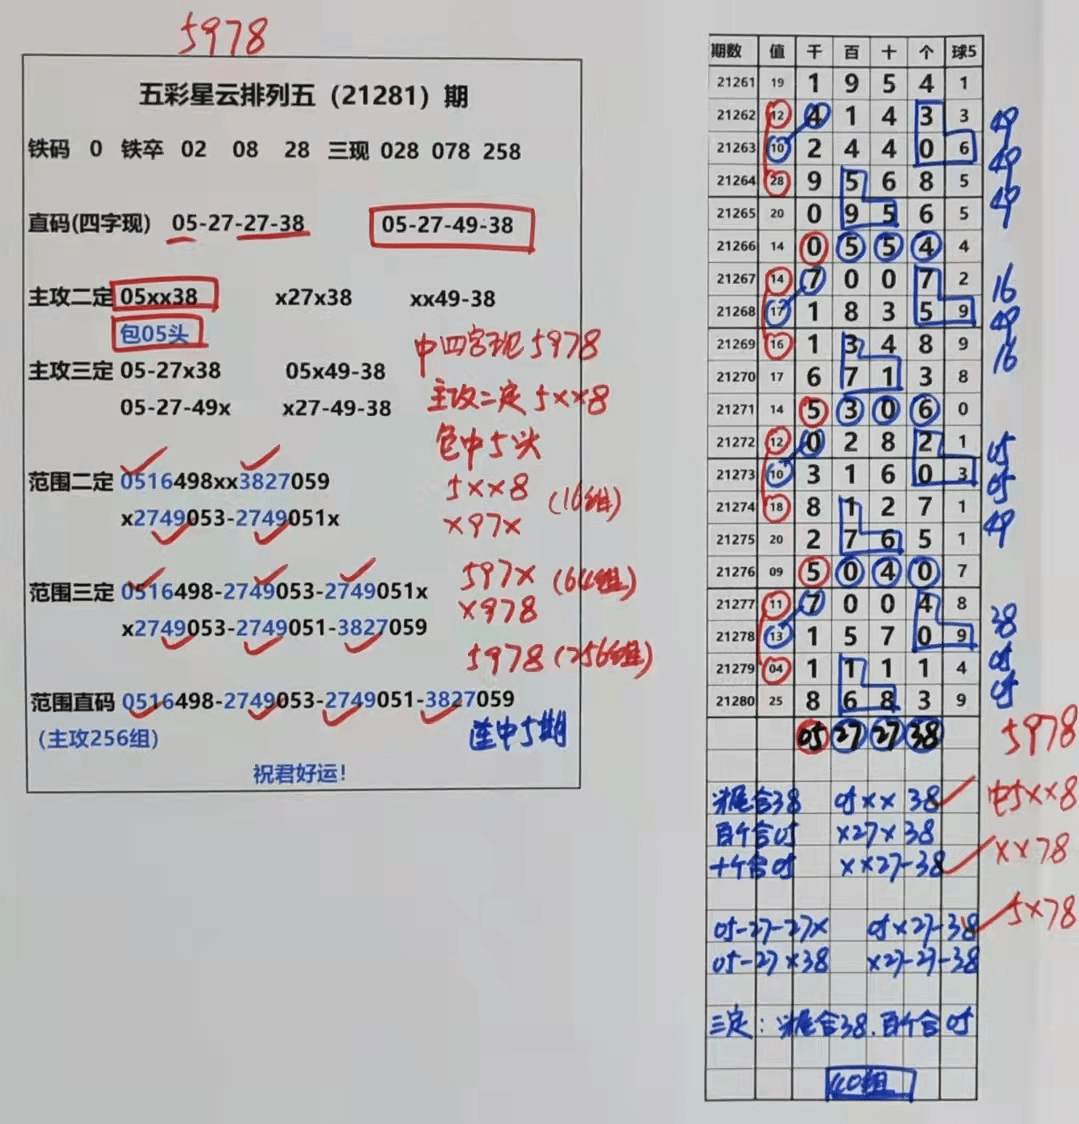 5978
五彩星云排列五（21281）期
铁码 0 铁卒 02 08 28 三现 028 078 258
直码(四字现) 05-27-27-38 05-27-49-38
主攻二定 05xx38 x27x38 xx49-38
包05头
主攻三定 05-27x38 05x49-38
05-27-49x x27-49-38
中四字现5978
主攻二定5xx8
包中5头
范围二定 0516498xx3827059
x2749053-2749051x
5xx8 (16组)
x97x
范围三定 0516498-2749053-2749051x
x2749053-2749051-3827059
597x (64组)
x978
5978 (256组)
范围直码 0516498-2749053-2749051-3827059
(主攻256组)
连中5期
祝君好运!
期数 值 千 百 十 个 球5
21261 19 1 9 5 4 1
21262 12 4 1 4 3 3 49
21263 10 2 4 4 0 6 49
21264 28 9 5 6 8 5 49
21265 20 0 9 5 6 5
21266 14 0 5 5 4 4
21267 14 7 0 0 7 2 16
21268 17 1 8 3 5 9 49
21269 16 1 3 4 8 9 16
21270 17 6 7 1 3 8
21271 14 5 3 0 6 0
21272 12 0 2 8 2 1 05
21273 10 3 1 6 0 3 05
21274 18 8 1 2 7 1 49
21275 20 2 7 6 5 1
21276 09 5 0 4 0 7
21277 11 7 0 0 4 8 38
21278 13 1 5 7 0 9 05
21279 04 1 1 1 1 4 05
21280 25 8 6 8 3 9
05 27 27 38 5978
头尾合38 05xx38 中5xx8
百个合05 x27x38
十个合05 xx27-38 xx78
05-27-27x 05x27-38 5x78
05-27x38 x27-27-38
三定：头尾合38.百个合05
40组